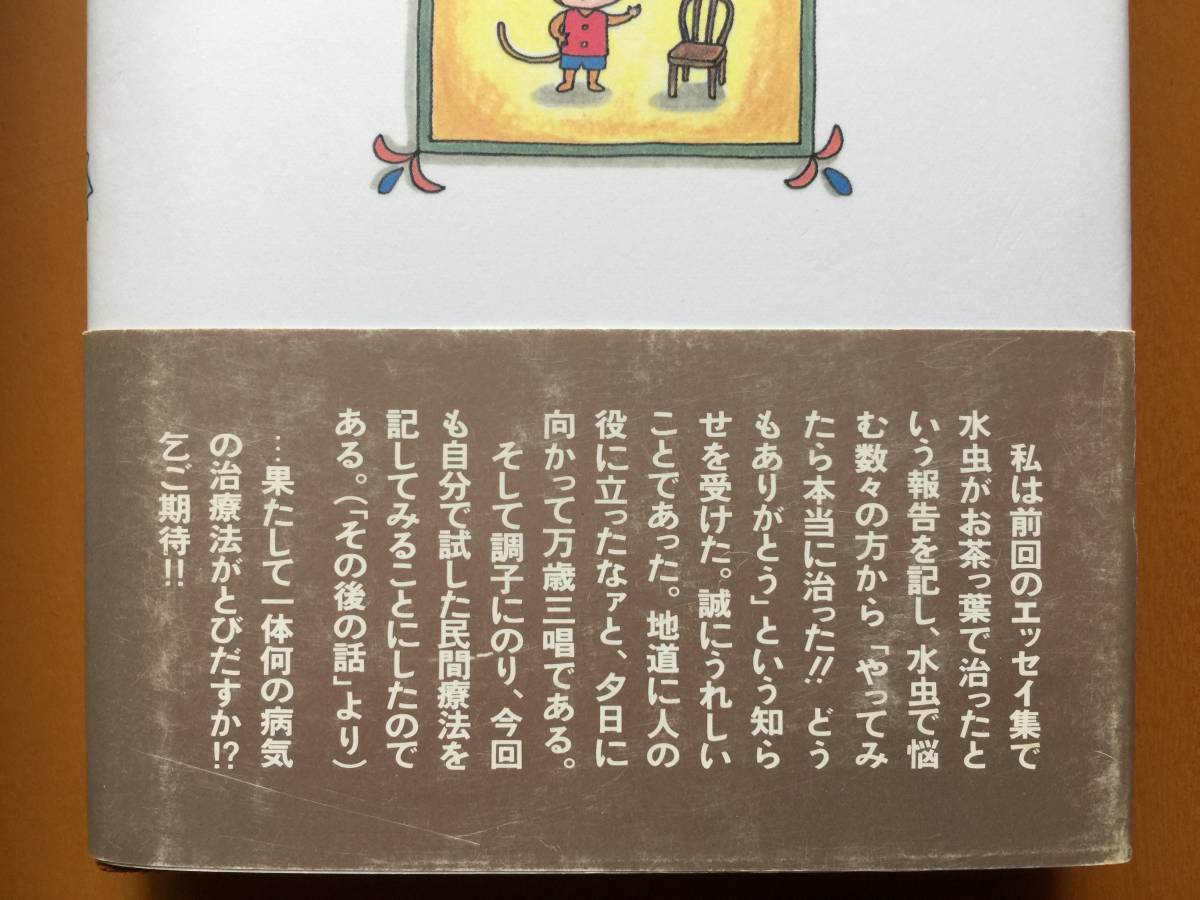 私は前回のエッセイ集で
水虫がお茶っ葉で治ったと
いう報告を記し、水虫で悩
む数々の方から「やってみ
たら本当に治った!! どう
もありがとう」という知ら
せを受けた。誠にうれしい
ことであった。地道に人の
役に立ったなァと、夕日に
向かって万歳三唱である。
そして調子にのり、今回
も自分で試した民間療法を
記してみることにしたので
ある。(「その後の話」より)
…果たして一体何の病気
の治療法がとびだすか!?
乞ご期待!!